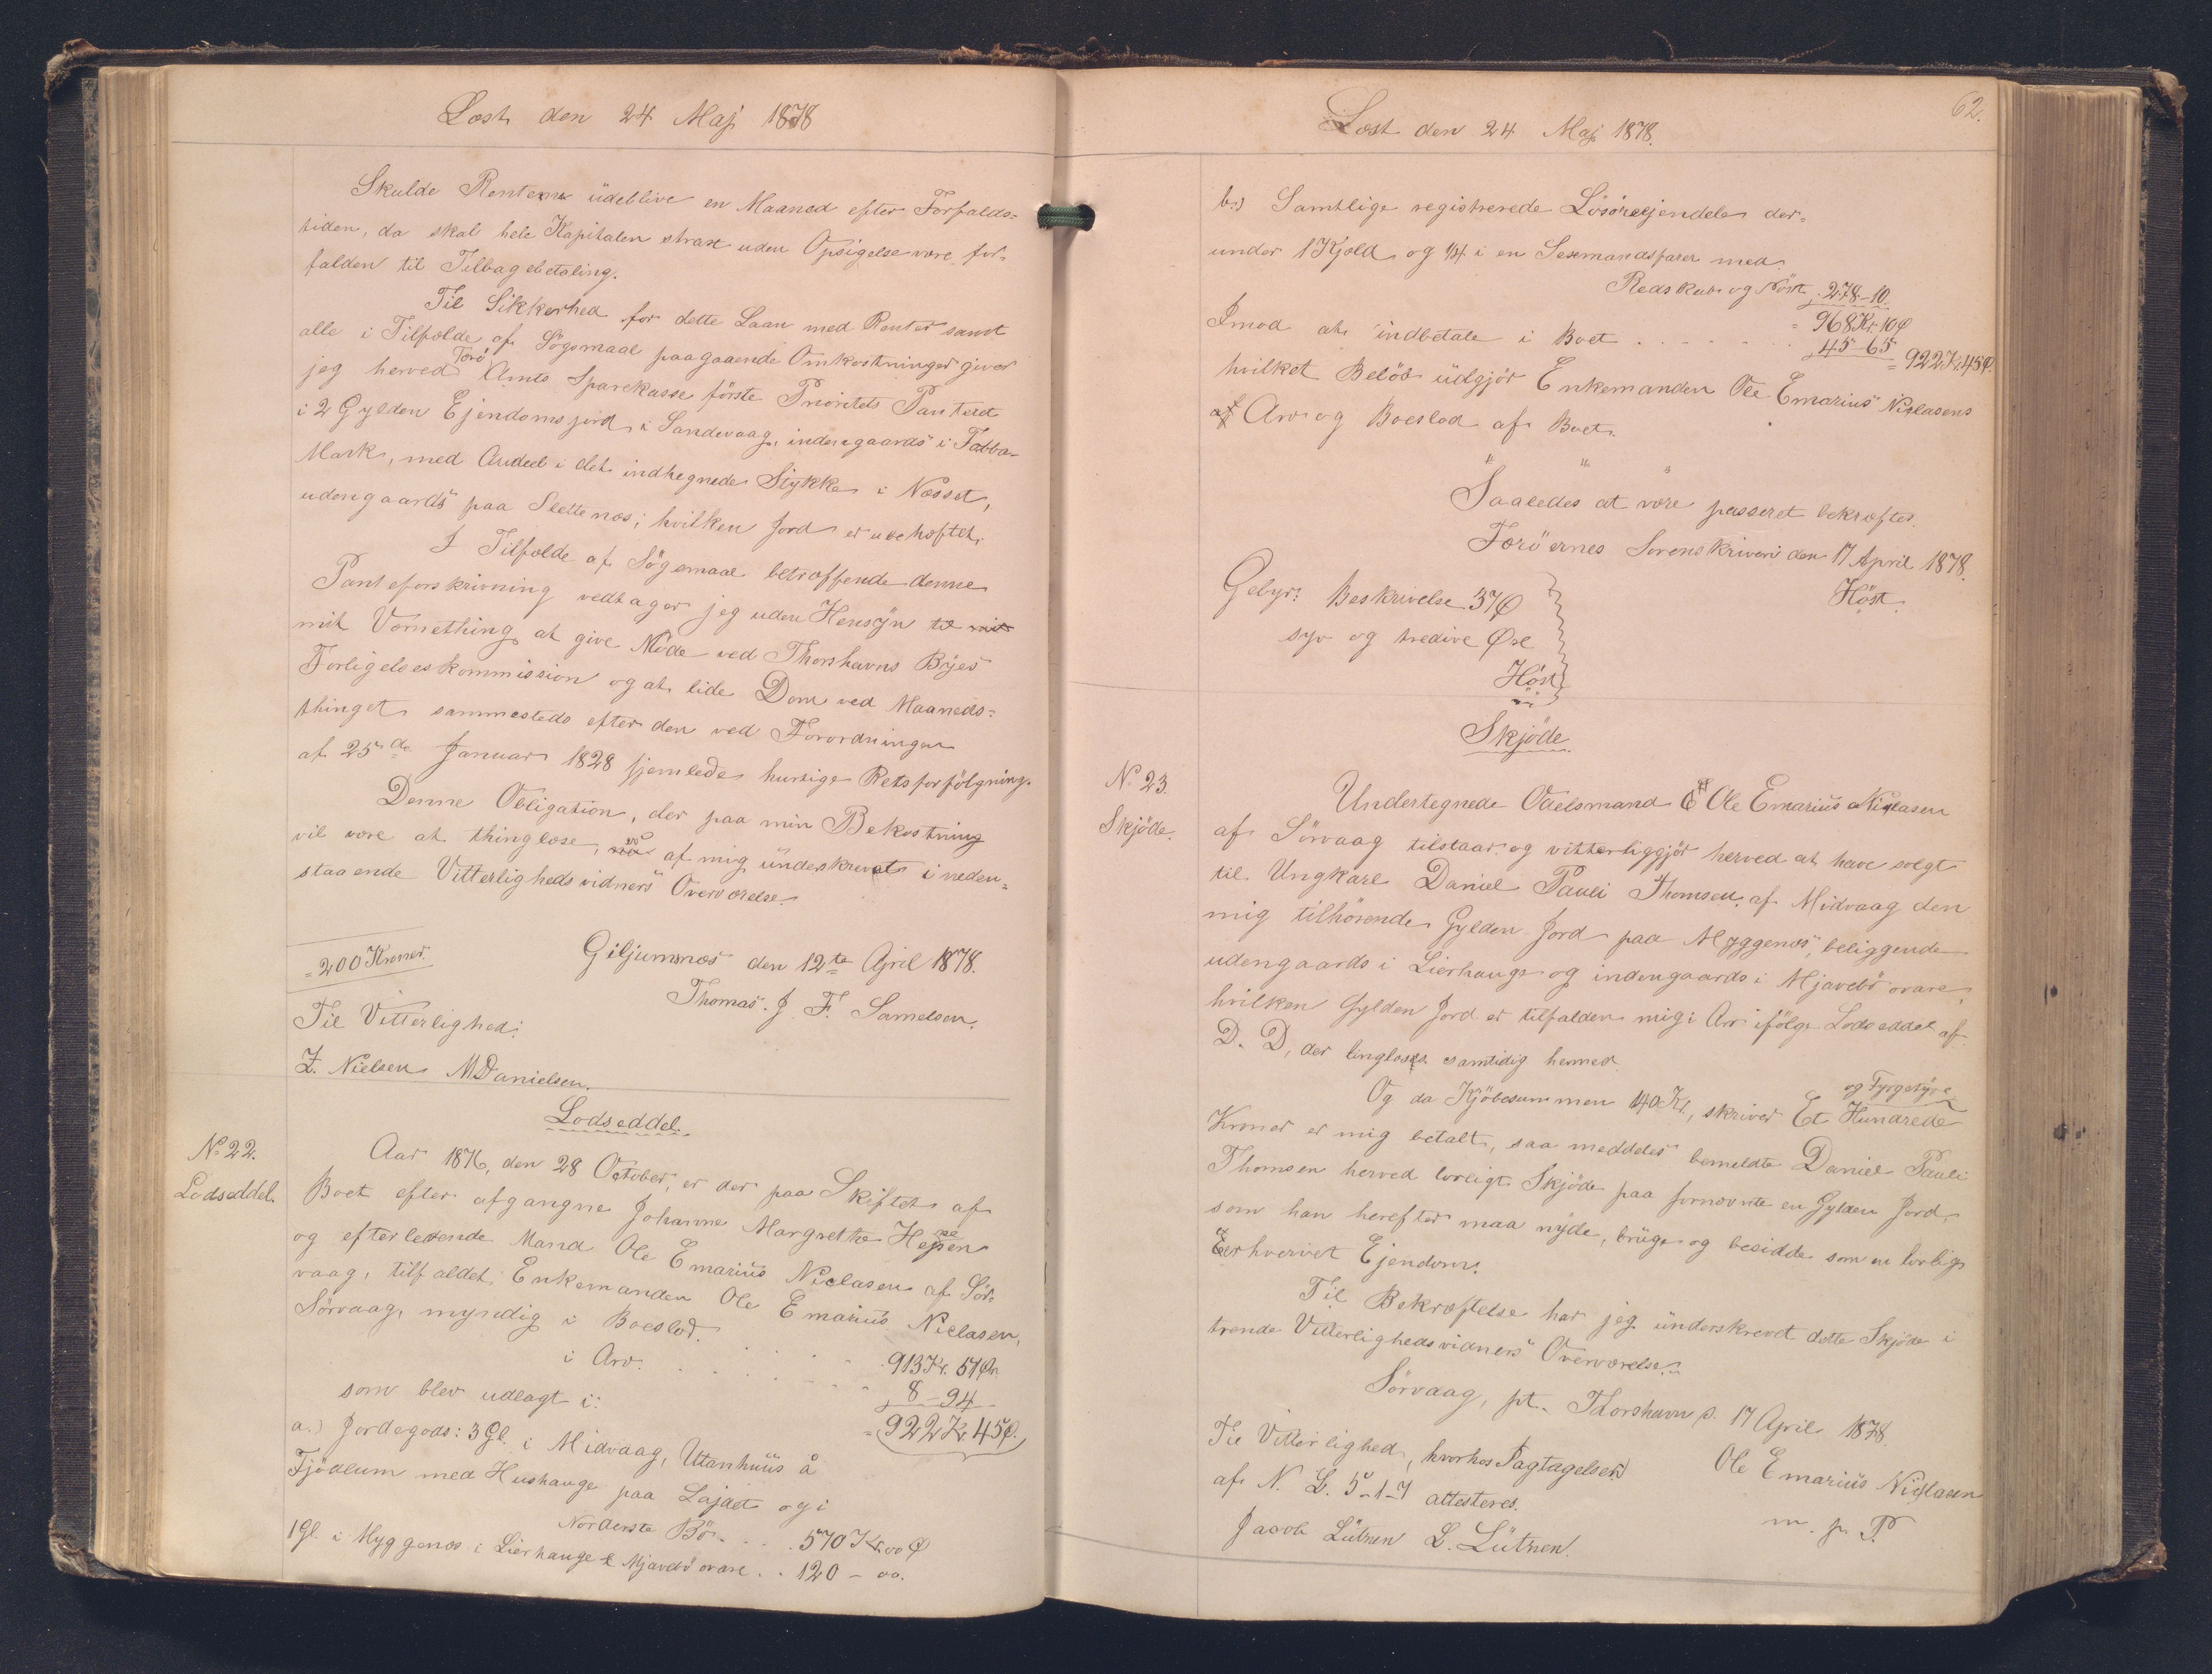 Læst den 24 Maj 1878
Skulde Renterne udeblive en Maaned efter Forfalds=
tiden, da skal hele Kapitalen strax uden Opsigelse være for-
falden til Tilbagebetaling.
Til Sikkerhed for dette Laan med Renter samt
alle i Tilfælde af Sögsmaal paagaaende Omkostninger giver
jeg herved Færö Amts Sparekasse förste Prioritets Panteret
i 2 Gylden Ejendomsjord i Sandevaag, indengaards i Fabba-
Mark, med Andeel i det indhegnede Stykke i Næsset,
udengaards paa Slettenæs; hvilken Jord er ubehæftet.
I Tilfælde af Sögsmaal betræffende denne
Panteforskrivning vedtager jeg uden Hensyn til
mit Værnething at give Möde ved Thorshavns Byes
Forligelseskommission og at lide Dom ved Maaneds=
thinget sammesteds efter den ved Forordningen
af 25de Januar 1828 hjemlede hurtige Retsforfölgning.
Denne Obligation, der paa min Bekostning
vil være at thinglæse, er af mig underskrevet i neden=
staaende Vitterlighedsvidners Overværelse.
=200 Kroner.
Giljumnæs den 12te April 1878.
Thomas. J. F. Samelsen.
Til Vitterlighed:
Z. Nielsen M Danielsen.
Lodseddel.
No 22.
Lodseddel.
Aar 1876, den 28 October, er der paa Skiftet af
Boet efter afgangne Johanne Margrethe
og efterlevende Mand Ole Emarius Niclasen af Sör-
vaag, tilfaldet Enkemanden Ole Emarius Niclasen,
Sörvaag, myndig i Boeslod. 913 Kr. 51 Ø.
i Arv. 8 – 94
som blev udlagt i: = 922 Kr. 45 Ø.
a.) Jordegods: 3 Gl. i Midvaag, Utanhuus å
Fjödlum med Hushauge paa Lajdet og i
Norderste Bö. . . 570 Kr. 00 Ø
1 Gl. i Myggenæs i Lierhauge & Mjavebö ovare . . 120 – 00.
62.
Læst den 24 Maj 1878.
b.) Samtlige registrerede Lösöreejendele der=
under 1 Kjæld og 1/4 i en Sexmandsfarer med
Redskab og Nöst 278-10.
= 968 Kr. 10 Ø
Imod at indbetale i Boet . . . . . . 45-65 = 922 Kr. 45 Ø.
hvilket Belöb udgjör Enkemanden Ole Emarius Niclasens
Arv og Boeslod af Boet.
" " "
Saaledes at være passeret bekræftes.
Færöernes Sorenskriveri den 17 April 1878.
Höst.
Gebyr: Beskrivelse 37 Ø
syv og tredive Øre
Höst
Skjöde.
No 23.
Skjöde.
Undertegnede Odelsmand Ole Emarius Niclasen
af Sörvaag tilstaar og vitterliggjör herved at have solgt
til Ungkarl Daniel Pauli Thomsen af Midvaag den
mig tilhörende Gylden Jord paa Myggenæs, beliggende
udengaards i Lierhauge og indengaards i Mjavebö ovare,
hvilken Gylden Jord er tilfalden mig i Arv ifölge Lodseddel af
D. D, der tinglæses samtidig hermed.
Og da Kjöbesummen 140 Kr, skriver Et Hundrede og Fyrgetyve
Kroner er mig betalt, saa meddeles bemeldte Daniel Pauli
Thomsen herved lovligt Skjöde paa fornævnte en Gylden Jord,
som han herefter maa nyde, bruge og besidde som en lovlig
Eerhvervet Ejendom.
Til Bekræftelse har jeg underskrevet dette Skjöde i
trende Vitterlighedsvidners Overværelse.
Sörvaag, pt. Thorshavn d. 17 April 1878.
Til Vitterlighed, hvorhos Iagtagelsen
af N. L. 5-1-7 attesteres.
Ole Emarius Niclasen
m. p. P.
Jacob Lützen L. Lützen.